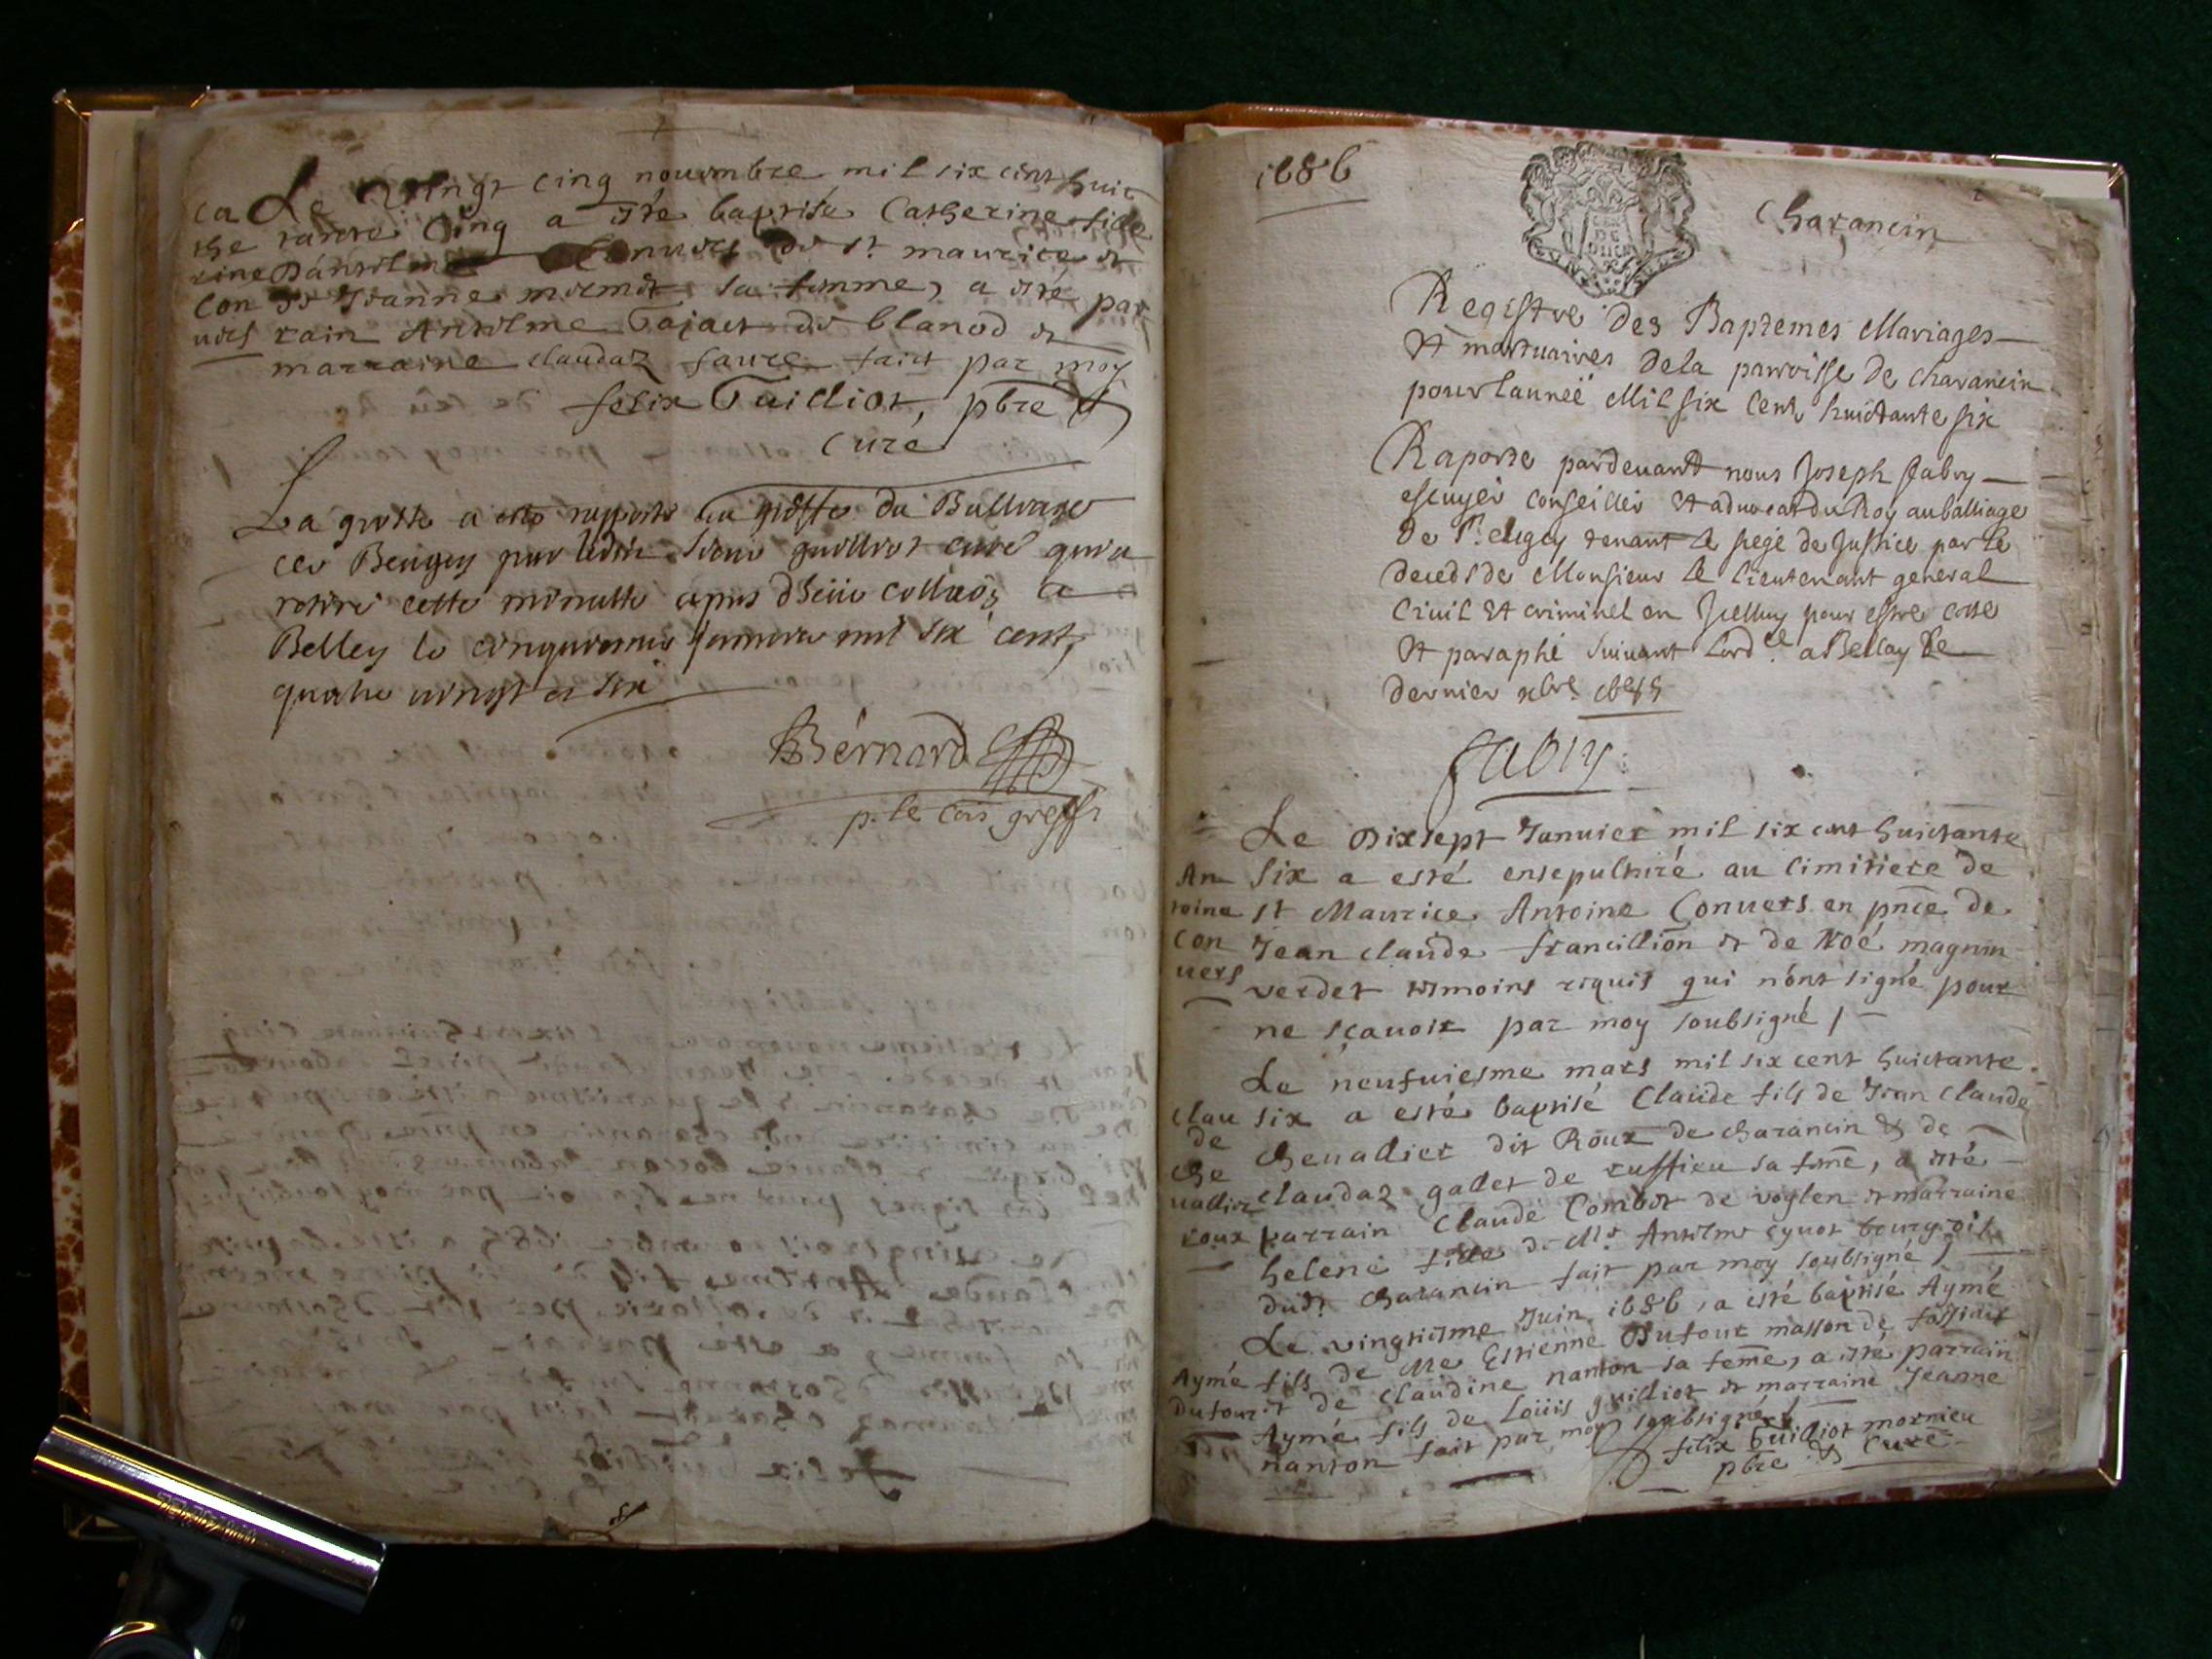 Le Vingt cinq nouembre mil six cent huic
ca
tante Cinq a esté baptisée Catherine fille
the
rine
D'antelme Conuers de St. maurice et
Con
de Jeanne mermet sa femme, a esté par
uers
rain Anthelme Gajact de blanod et
marraine claudaz faure fait par moy
felix Guilliot, pbre &
Curé
La grosse a esté rapporté au greffe du Balliage
de Beugey par ledit Sieur guilliot curé qui a
retiré cette minutte apres dheue collaõn a
Belley le cinquiesme Januier mil six cent
quatre vingt et six
Bernard
p. le com greff
1686
Charancin
Registre des Baptemes Mariages
Et mortuaires de la parroisse de charancin
pour l'anneé Mil six Cent huictante six
Raporté pardeuant nous Joseph fabry
escuyer conseiller Et aduocat du Roy au balliage
de Beugey tenant le siege de Justice par le
deceds de Monsieur le lieutenant general
Ciuil Et criminel en Icelluy pour estre cotté
Et paraphé suiuant lord.ce a Belley Le
dernier xbre 1685
fabry
Le Dixsept Januier mil six cent huictante
An
six a esté ensepulturé au Cimitiere de
toine
St Maurice Antoine Conuers en pnce de
Con
Jean claude francillion et de Noé magnin
uers
verdet temoins requis qui n'ont signé pour
ne sçauoir par moy soubsigné /
Le neufuiesme mars mil six cent huictante
Clau
six a esté baptisé Claude fils de Jean Claude
de
Che
Cheuallier dit Roux de charancin & de
uallier
claudaz gallet de ruffieu sa feme, a esté
roux
parrain Claude Combet de voglen et marraine
helene fille de Mr Antelme cynot bourgois
dudt charancin fait par moy soubsigné /
Le vingtiesme Juin 1686, a esté baptisé Aymé
Aymé
fils de Me Estienne Dufour masson de
Dufour
et de Claudine nanton sa feme, a esté parrain
Aymé fils de Loüis guilliot et marraine Jeanne
nanton fait par moy soubsigné /
felix Guilliot mornieu
pbre & Curé